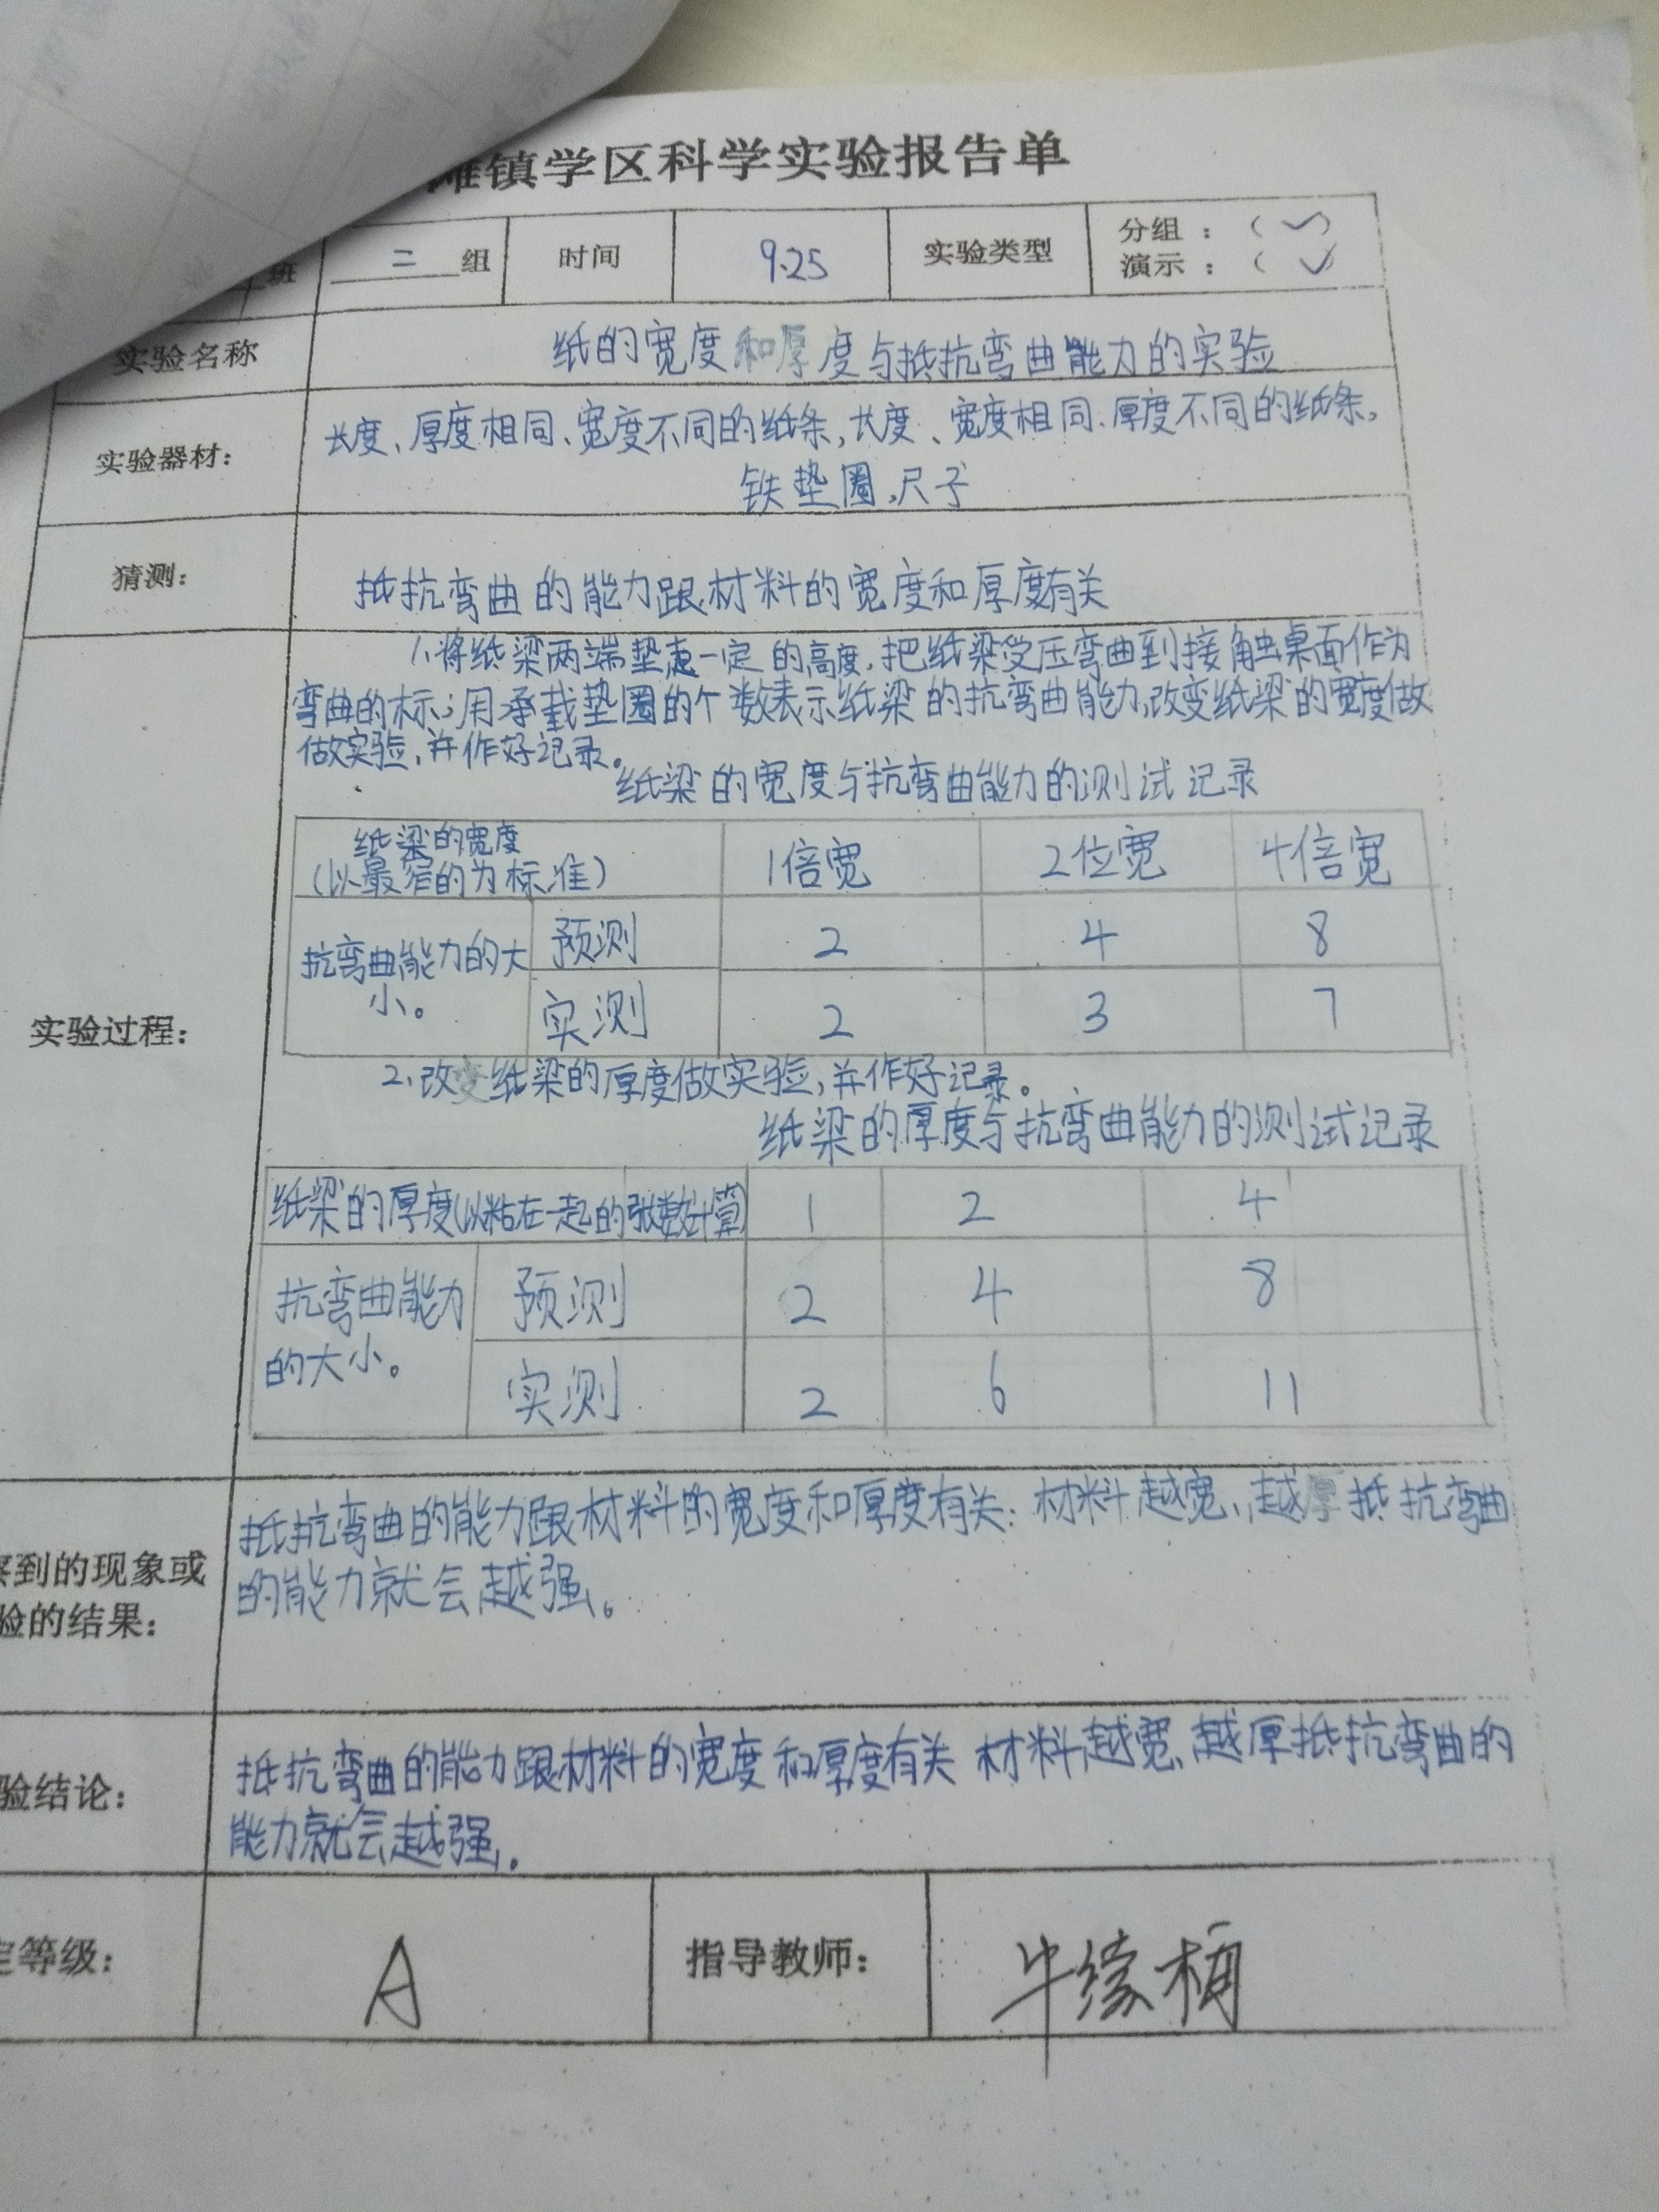 滩镇学区科学实验报告单
班 二 组 时间 9.25 实验类型 分组：（✓）
演示：（✓）
实验名称 纸的宽度和厚度与抵抗弯曲能力的实验
实验器材： 长度、厚度相同、宽度不同的纸条，长度、宽度相同、厚度不同的纸条，
铁垫圈，尺子
猜测： 抵抗弯曲的能力跟材料的宽度和厚度有关
实验过程：
1、将纸梁两端垫起一定的高度，把纸梁受压弯曲到接触桌面作为
弯曲的标；用承载垫圈的个数表示纸梁的抗弯曲能力，改变纸梁的宽度做
做实验，并作好记录。
纸梁的宽度与抗弯曲能力的测试记录
纸梁的宽度
（以最窄的为标准） 1倍宽 2位宽 4倍宽
抗弯曲能力的大
小。
预测 2 4 8
实测 2 3 7
2、改变纸梁的厚度做实验，并作好记录。
纸梁的厚度与抗弯曲能力的测试记录
纸梁的厚度（以粘在一起的张数计算） 1 2 4
抗弯曲能力
的大小。
预测 2 4 8
实测 2 6 11
到的现象或
验的结果：
抵抗弯曲的能力跟材料的宽度和厚度有关：材料越宽、越厚抵抗弯曲
的能力就会越强。
验结论：
抵抗弯曲的能力跟材料的宽度和厚度有关 材料越宽、越厚抵抗弯曲的
能力就会越强。
定等级： A 指导教师： 牛缘楠